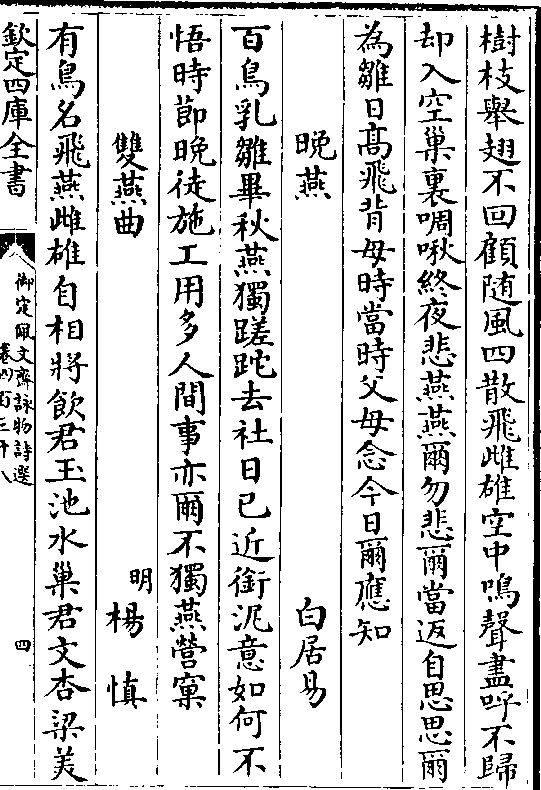 樹枝舉翅不回顧随風四散飛雌雄空中鳴聲盡呼不歸
却入空巢裏啁啾終夜悲燕燕爾勿悲爾當返自思思爾
為雛日高飛背母時當時父母念今日爾應知
晚燕 白居易
百鳥乳雛畢秋燕獨蹉跎去社日已近銜泥意如何不
悟時節晚徒施工用多人間事亦爾不獨燕營窠
雙燕曲 明 楊慎
有鳥名飛燕雌雄自相將飲君玉池水巢君文杏梁美
欽定四庫全書
御定佩文齋詠物詩選
卷四百三十八
四